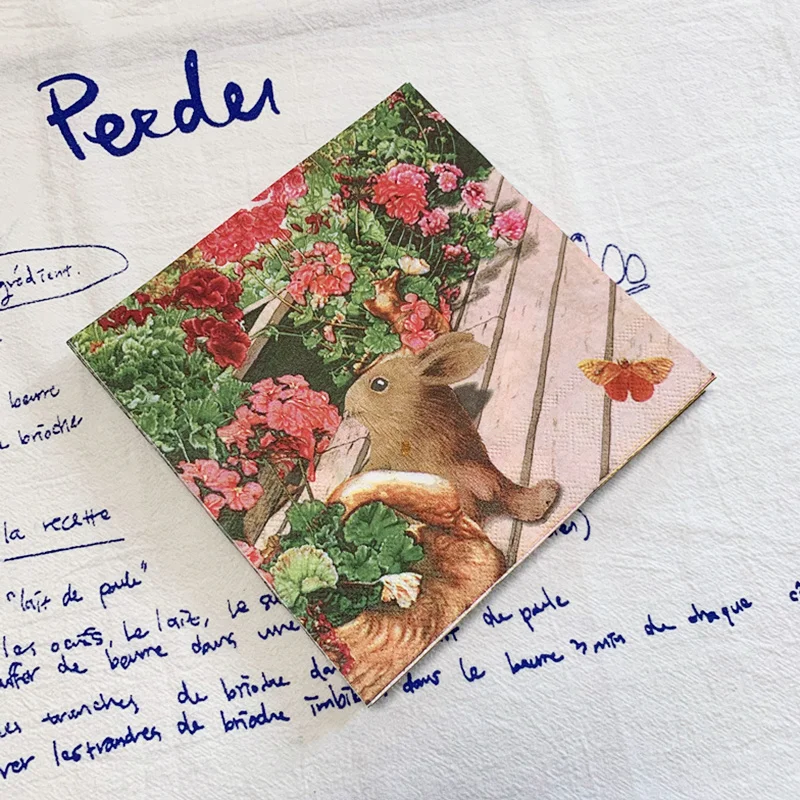 Perdu
grédient.
beurre
brioche
la recette
"lait de poule"
les oeufs, le lait, le su
ffer de beurre dans une de poule
tranches de brioche da
rer les trandres de brioche imbi dans le beurre 3 min de chaque c